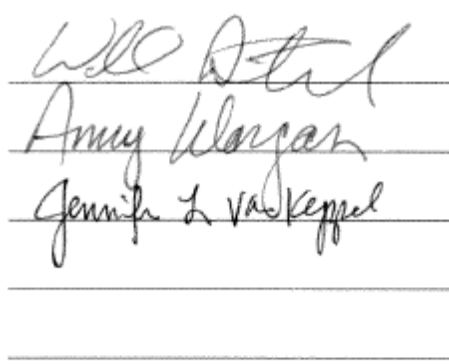 Will
Amy Morgan
Jennifer L VanKeppel